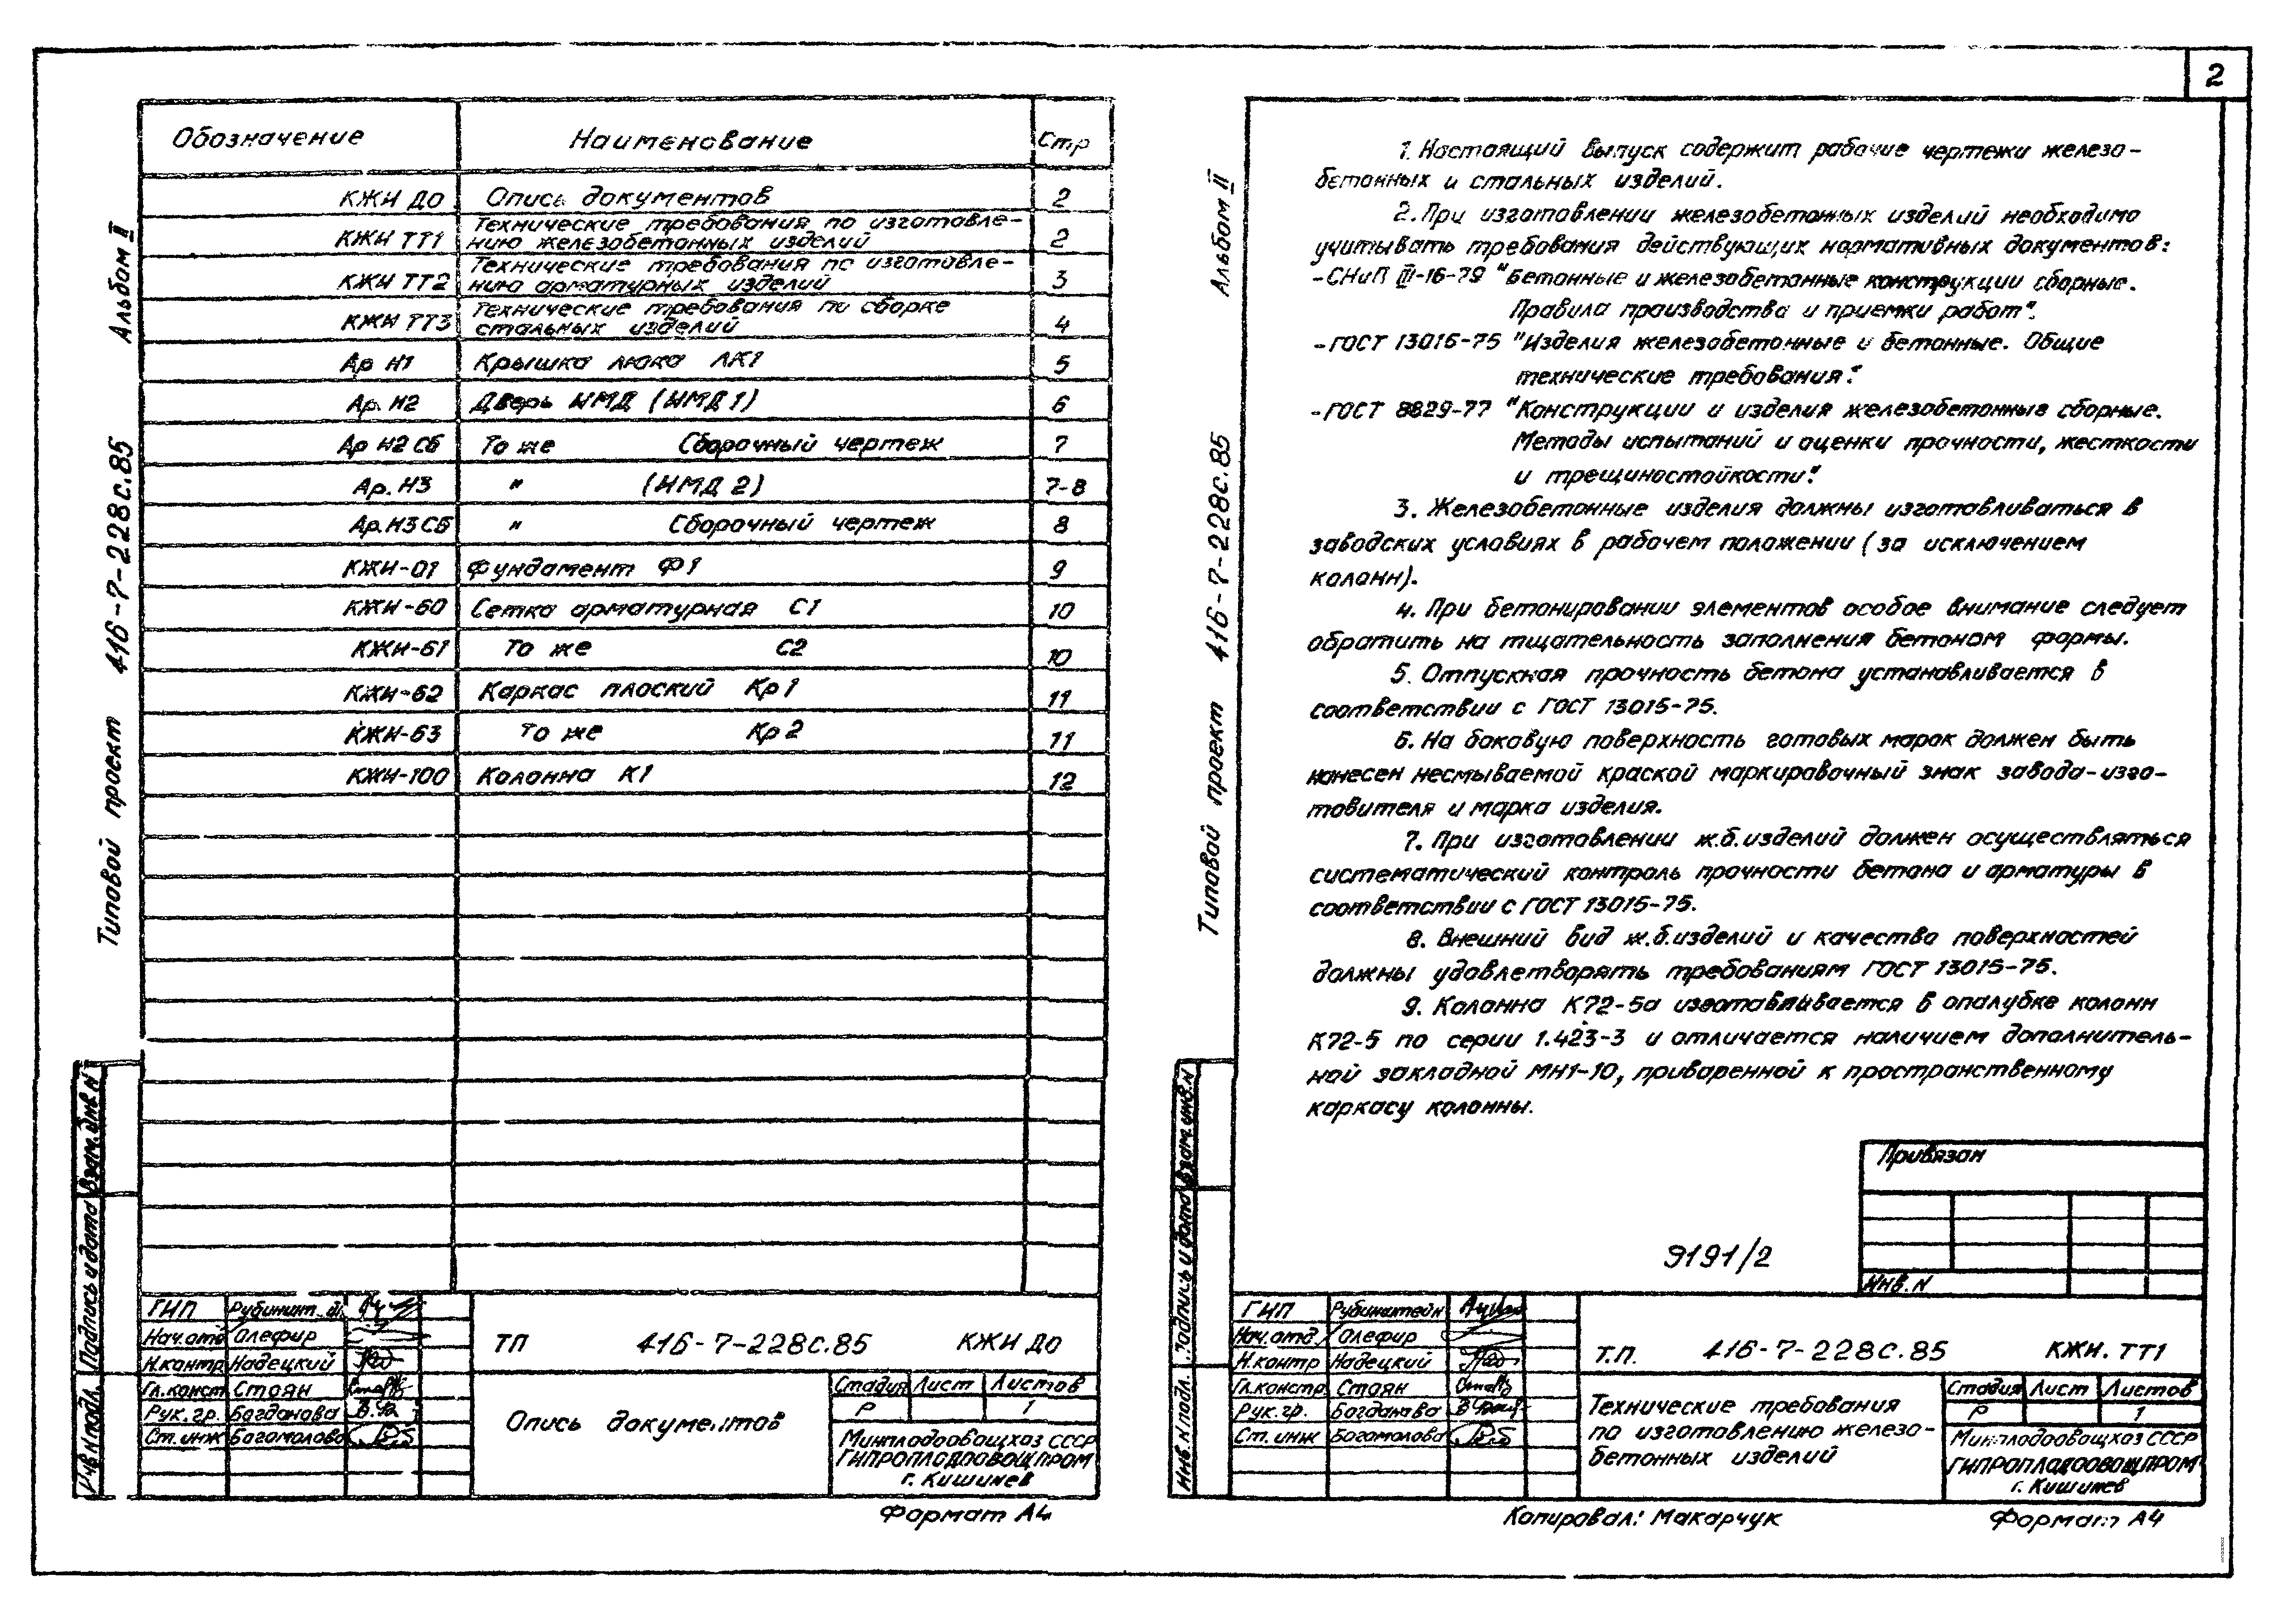 2
Альбом II
Типовой проект 416-7-228с.85
Обозначение Наименование Стр
КЖИ ДО Опись документов 2
КЖИ ТТ1 Технические требования по изготовле-
нию железобетонных изделий 2
КЖИ ТТ2 Технические требования по изготовле-
нию арматурных изделий 3
КЖИ ТТ3 Технические требования по сборке
стальных изделий 4
Ар И1 Крышка люка ЛК1 5
Ар. И2 Дверь ИМД (ИМД 1) 6
Ар И2 СБ То же Сборочный чертеж 7
Ар. И3 " (ИМД 2) 7-8
Ар. И3 СБ " Сборочный чертеж 8
КЖИ-01 Фундамент Ф1 9
КЖИ-60 Сетка арматурная С1 10
КЖИ-61 То же С2 10
КЖИ-62 Каркас плоский Кр1 11
КЖИ-63 То же Кр2 11
КЖИ-100 Колонна К1 12
Взам. инв. N
Подпись и дата
Инв. N подл.
ГИП
Нач. отд Олефир
Н.контр Надецкий
Гл.конст Стоян
Рук. гр. Богданова
Ст. инж Богомолова
ТП 416-7-228с.85 КЖИ ДО
Опись документов
Стадия Лист Листов
Р 1
Минплодоовощхоз СССР
ГИПРОПЛОДООВОЩПРОМ
г. Кишинев
Формат А4
Альбом II
Типовой проект 416-7-228с.85
1. Настоящий выпуск содержит рабочие чертежи железо-
бетонных и стальных изделий.
2. При изготовлении железобетонных изделий необходимо
учитывать требования действующих нормативных документов:
-СНиП III-16-79 "Бетонные и железобетонные конструкции сборные.
Правила производства и приемки работ".
-ГОСТ 13015-75 "Изделия железобетонные и бетонные. Общие
технические требования".
-ГОСТ 8829-77 "Конструкции и изделия железобетонные сборные.
Методы испытаний и оценки прочности, жесткости
и трещиностойкости".
3. Железобетонные изделия должны изготавливаться в
заводских условиях в рабочем положении (за исключением
колонн).
4. При бетонировании элементов особое внимание следует
обратить на тщательность заполнения бетоном формы.
5. Отпускная прочность бетона устанавливается в
соответствии с ГОСТ 13015-75.
6. На боковую поверхность готовых марок должен быть
нанесен несмываемой краской маркировочный знак завода-изго-
товителя и марка изделия.
7. При изготовлении ж.б. изделий должен осуществляться
систематический контроль прочности бетона и арматуры в
соответствии с ГОСТ 13015-75.
8. Внешний вид ж.б. изделий и качество поверхностей
должны удовлетворять требованиям ГОСТ 13015-75.
9. Колонна К72-5а изготавливается в опалубке колонн
К72-5 по серии 1.423-3 и отличается наличием дополнитель-
ной закладной МН1-10, приваренной к пространственному
каркасу колонны.
Привязан
Инв. N
9191/2
Взам. инв. N
Подпись и дата
Инв. N подл.
ГИП Рубинштейн
Нач. отд. Олефир
Н.контр Надецкий
Гл.констр Стоян
Рук. гр. Богданова
Ст. инж Богомолова
Т.П. 416-7-228с.85 КЖИ. ТТ1
Технические требования
по изготовлению железо-
бетонных изделий
Стадия Лист Листов
Р 1
Минплодоовощхоз СССР
ГИПРОПЛОДООВОЩПРОМ
г. Кишинев
Копировал: Макарчук Формат А4